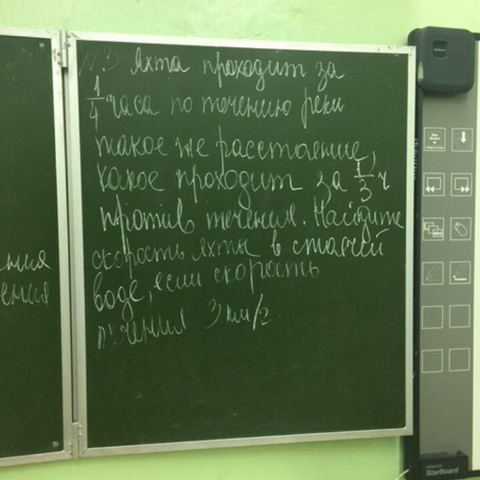 №3 Яхта проходит за
1/4 часа по течению реки
такое же расстояние,
какое проходит за 1/3 ч
против течения. Найдите
скорость яхты в стоячей
воде, если скорость
течения 3 км/ч.
ения
StarBoard